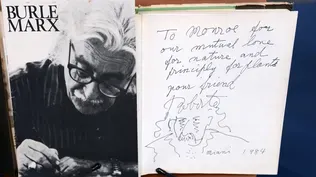 BURLE
MARX
To Monroe for
our mutual love
for nature and
principly for plants
your friend
Roberto
Miami 1984